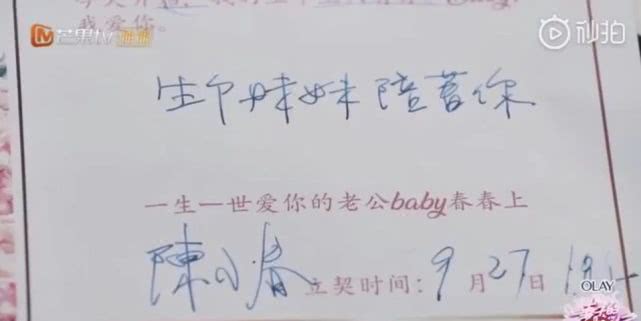 我爱你。
芒果TV
秒拍
生个妹妹陪着你
一生一世爱你的老公baby春春上
陳小春 立契时间：9月27日
OLAY